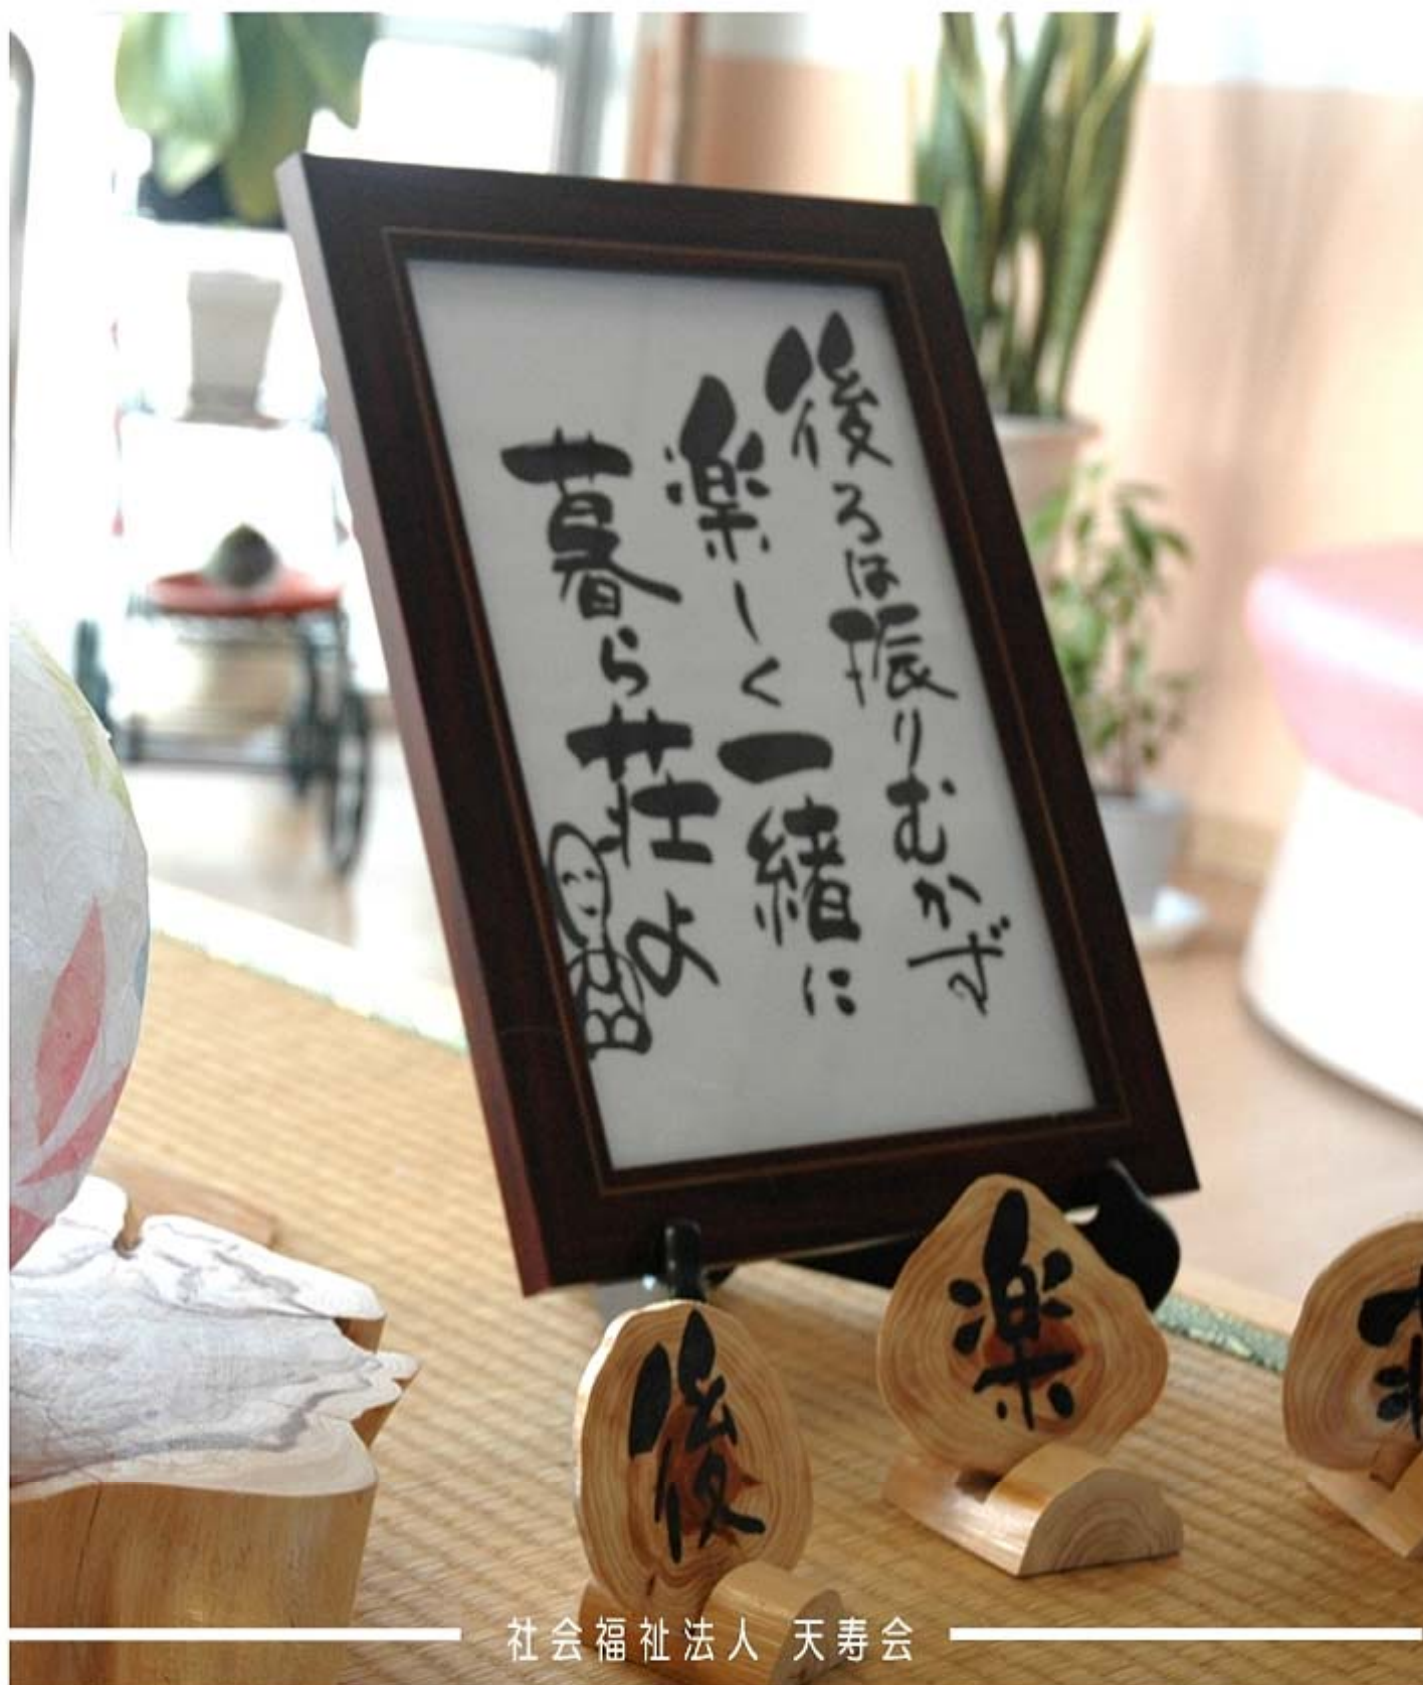 後ろは振りむかず
楽しく一緒に
暮ら荘よ
後
楽
社会福祉法人 天寿会